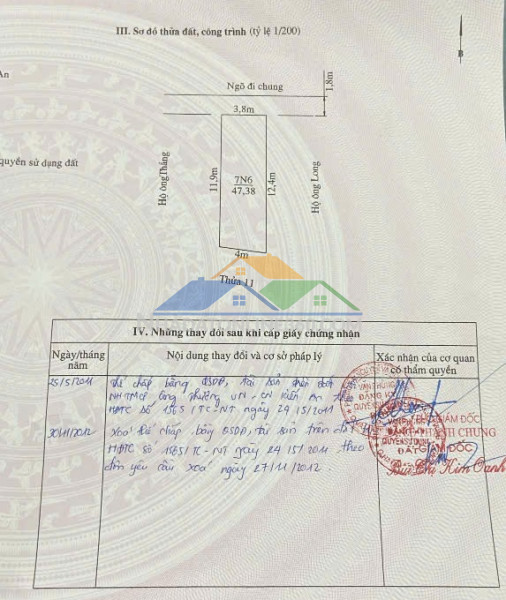 III. Sơ đồ thửa đất, công trình (tỷ lệ 1/200)
B
An
Ngõ đi chung
1,8m
3,8m
quyền sử dụng đất
Hộ ông Tháng
11,9m
7N6
47,38
12,4m
Hộ ông Long
4m
Thửa 11
IV. Những thay đổi sau khi cấp giấy chứng nhận
Ngày/tháng năm
Nội dung thay đổi và cơ sở pháp lý
Xác nhận của cơ quan có thẩm quyền
25/5/2011
Thế chấp bằng QSDĐ, tài sản trên đất
NHTMCP Công thương VN - CN Kiến An theo
HĐTC số 1565/TC-NT ngày 24/5/2011
30/11/2012
Xoá thế chấp bằng QSDĐ, tài sản trên đất
HĐTC số 1565/TC-NT ngày 24/5/2011 theo
đơn yêu cầu xoá ngày 27/11/2012
GIÁM ĐỐC
Bùi Thị Kim Oanh